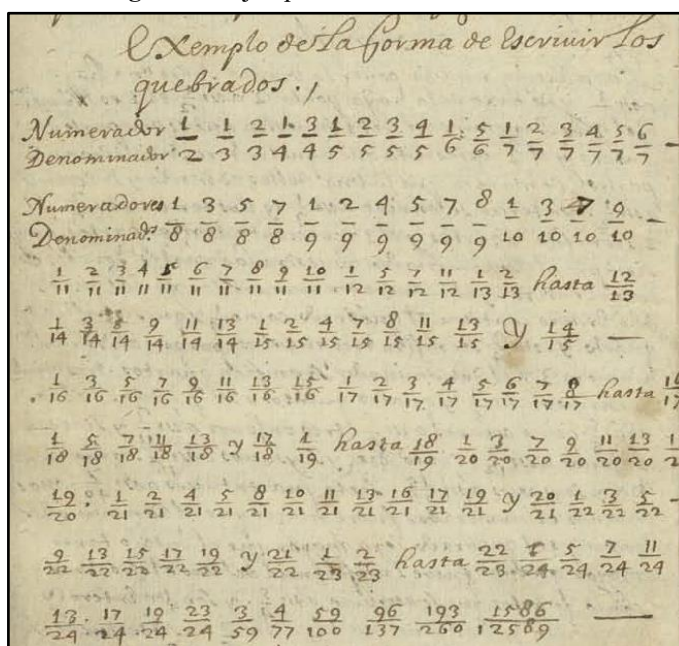 Exemplo de la forma de Escrivir Los
quebrados.
Numerador 1 1 2 1 3 1 2 3 4 1 5 1 2 3 4 5 6
Denominador 2 3 3 4 4 5 5 5 5 6 6 7 7 7 7 7 7 —
Numeradores 1 3 5 7 1 2 4 5 7 8 1 3 7 9
Denominad.s 8 8 8 8 9 9 9 9 9 9 10 10 10 10 —
1/11 2/11 3/11 4/11 5/11 6/11 7/11 8/11 9/11 10/11 1/12 5/12 7/12 11/12 1/13 2/13 hasta 12/13
1/14 3/14 5/14 9/14 11/14 13/14 1/15 2/15 4/15 7/15 8/15 11/15 13/15 y 14/15 —
1/16 3/16 5/16 7/16 9/16 11/16 13/16 15/16 1/17 2/17 3/17 4/17 5/17 6/17 7/17 8/17 hasta 16/17
1/18 5/18 7/18 11/18 13/18 y 17/18 1/19 hasta 18/19 1/20 3/20 7/20 9/20 11/20 13/20
19/20. 1/21 2/21 4/21 5/21 8/21 10/21 11/21 13/21 16/21 17/21 19/21 y 20/21 1/22 3/22 5/22 —
9/22 13/22 15/22 17/22 19/22 y 21/22 1/23 2/23 hasta 22/23 1/24 5/24 7/24 11/24
13/24 17/24 19/24 23/24 3/59 4/77 59/100 96/137 193/260 1586/12589 —